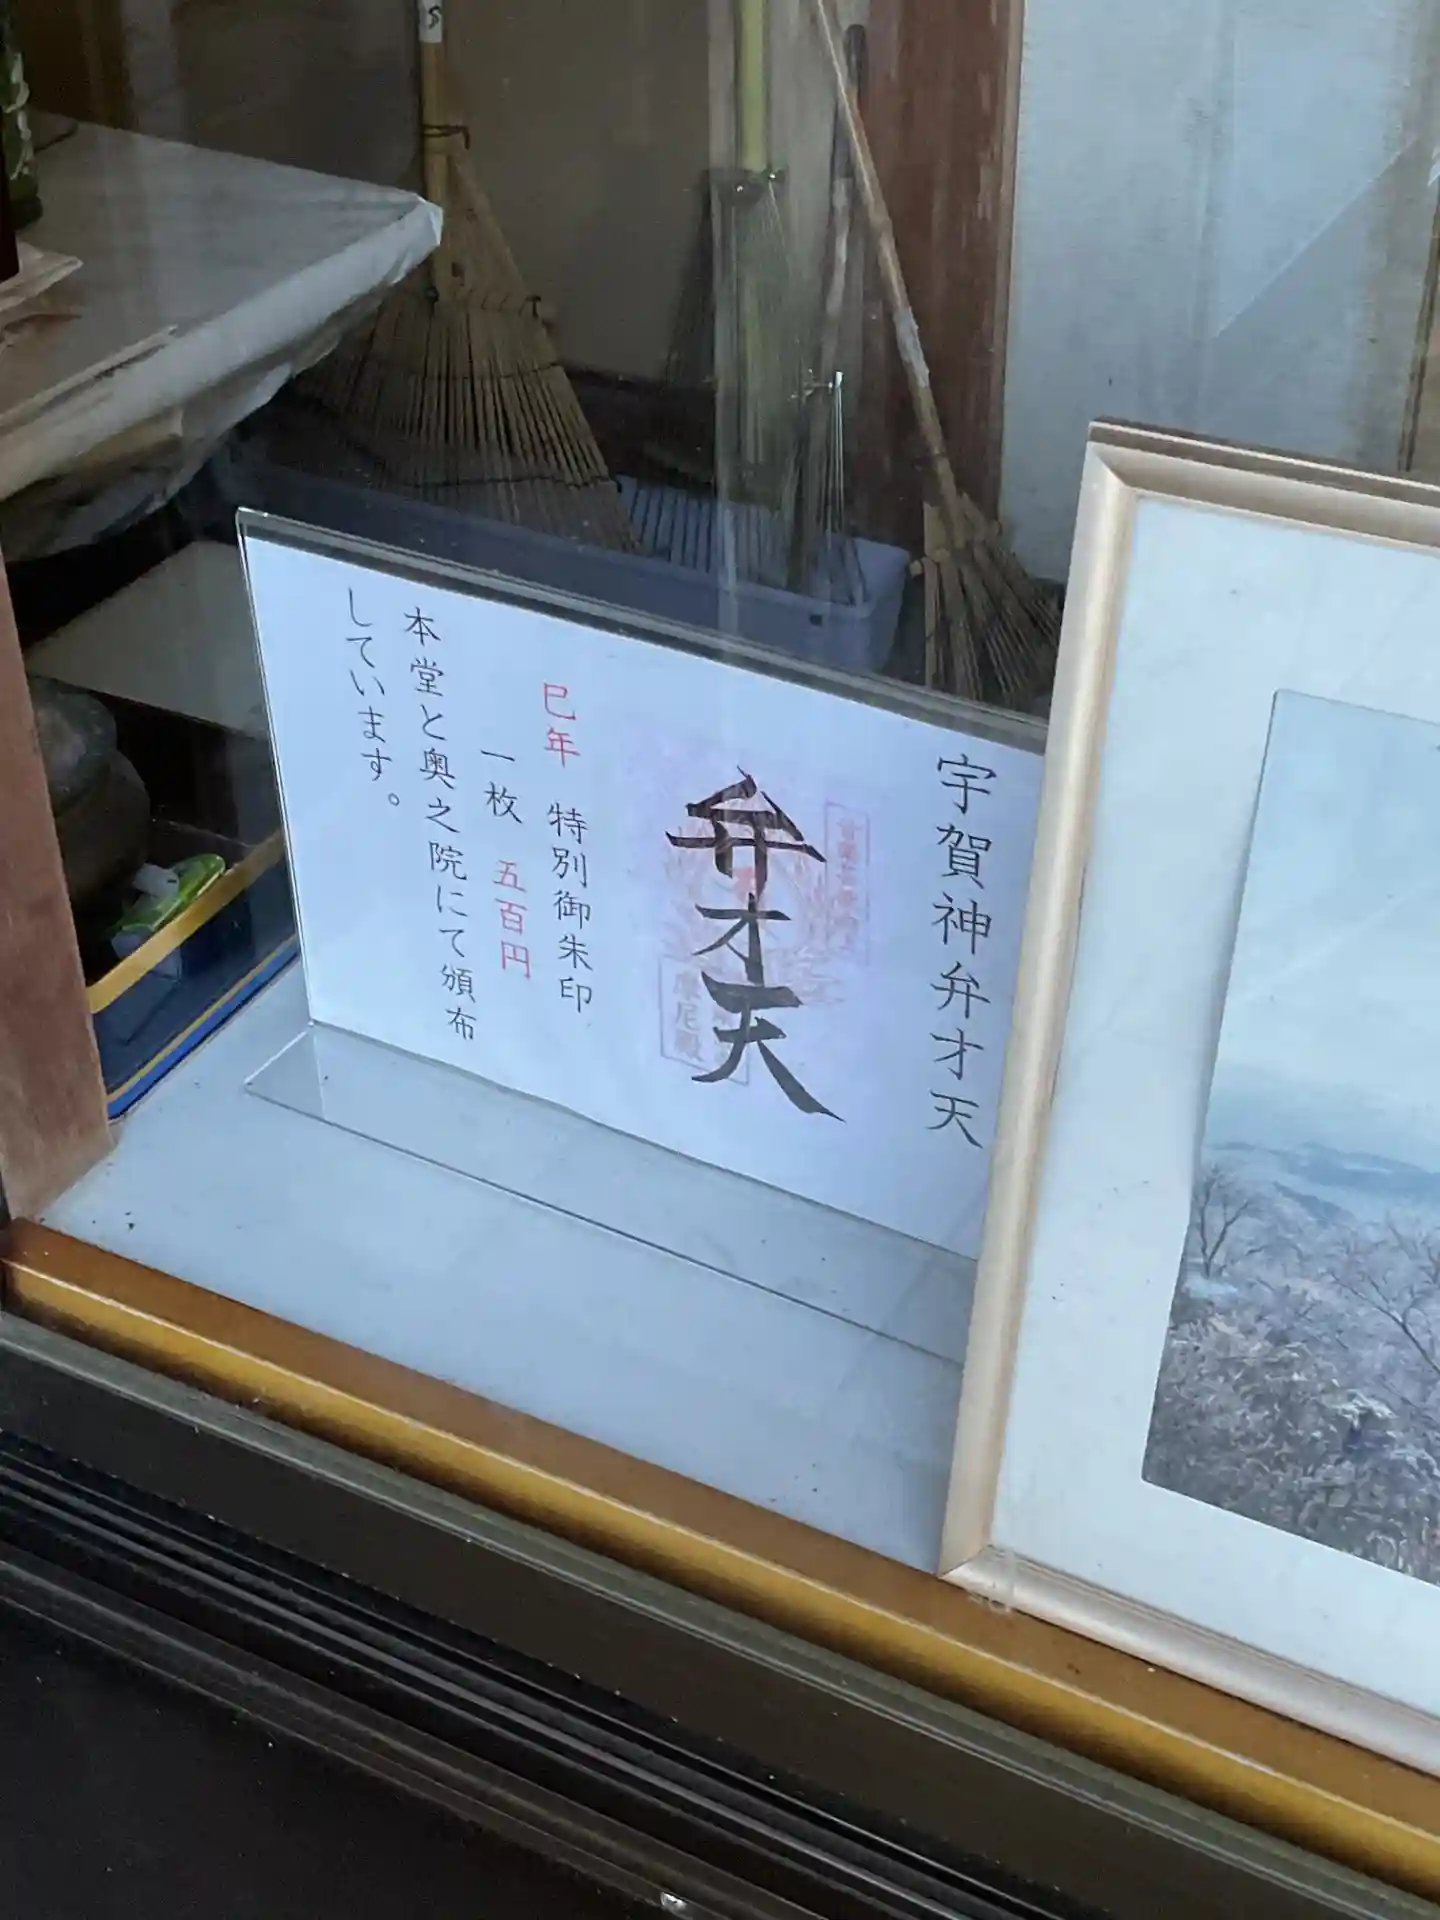 宇賀神弁才天
弁才天
摩尼殿
巳年 特別御朱印
一枚 五百円
本堂と奥之院にて頒布
しています。